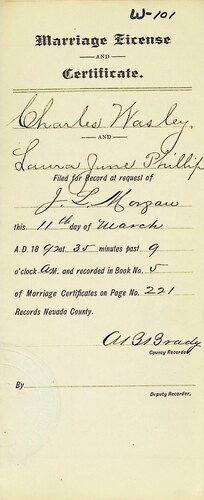 W-101
Marriage License
AND
Certificate.
Charles Wasley,
AND
Laura June Phillip
Filed for Record at request of
J. L. Morgan
this 11th day of March
A.D. 18 92 at 35 minutes past 9
o'clock A.M. and recorded in Book No. 5
of Marriage Certificates on Page No. 221
Records Nevada County.
Brady
County Recorder.
By
Deputy Recorder.